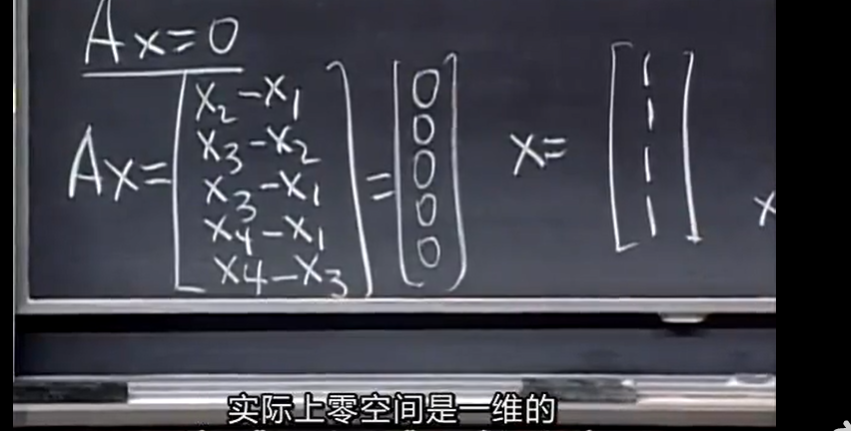 Ax=0
Ax= [x₂-x₁ x₃-x₂ x₃-x₁ x₄-x₁ x₄-x₃] = [0 0 0 0 0] x= [1 1 1 1] x
实际上零空间是一维的